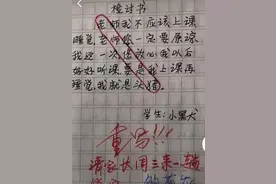 检讨书
老师我不应该上课
睡觉,老师你一定要原谅
我这一次,您放心我以后
好好听课,要是我上课再
睡觉,我就是文猫。
学生:小黑犬
重写!!!
请家长用三亲一